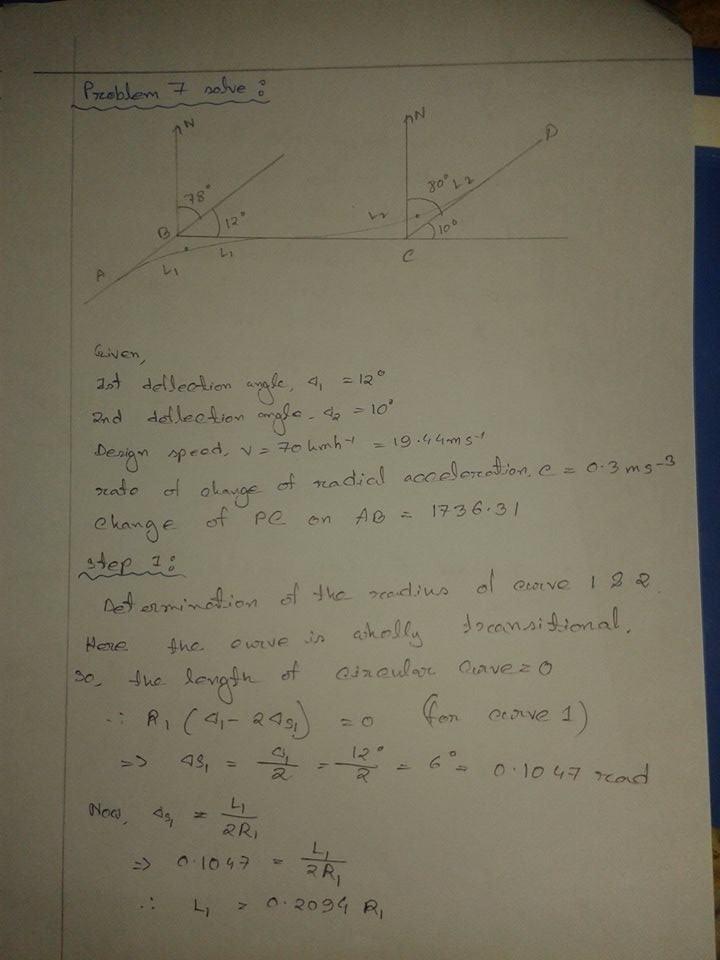 Problem 7 solve :
N
N
D
78°
80°
L2
B
12°
L2
10°
A
L1
L1
C
Given,
1st deflection angle, Δ1 = 12°
2nd deflection angle, Δ2 = 10°
Design speed, v = 70 kmh⁻¹ = 19.44 ms⁻¹
rate of change of radial acceleration, c = 0.3 ms⁻³
Change of PC on AB = 1736.31
Step 1:
Determination of the radius of curve 1 & 2.
Here the curve is wholly transitional.
So, the length of circular curve = 0
∴ R1 (Δ1 - 2Δs1) = 0 (for curve 1)
=> Δs1 = Δ1/2 = 12°/2 = 6° = 0.1047 rad
Now, Δs1 = L1/2R1
=> 0.1047 = L1/2R1
∴ L1 = 0.2094 R1